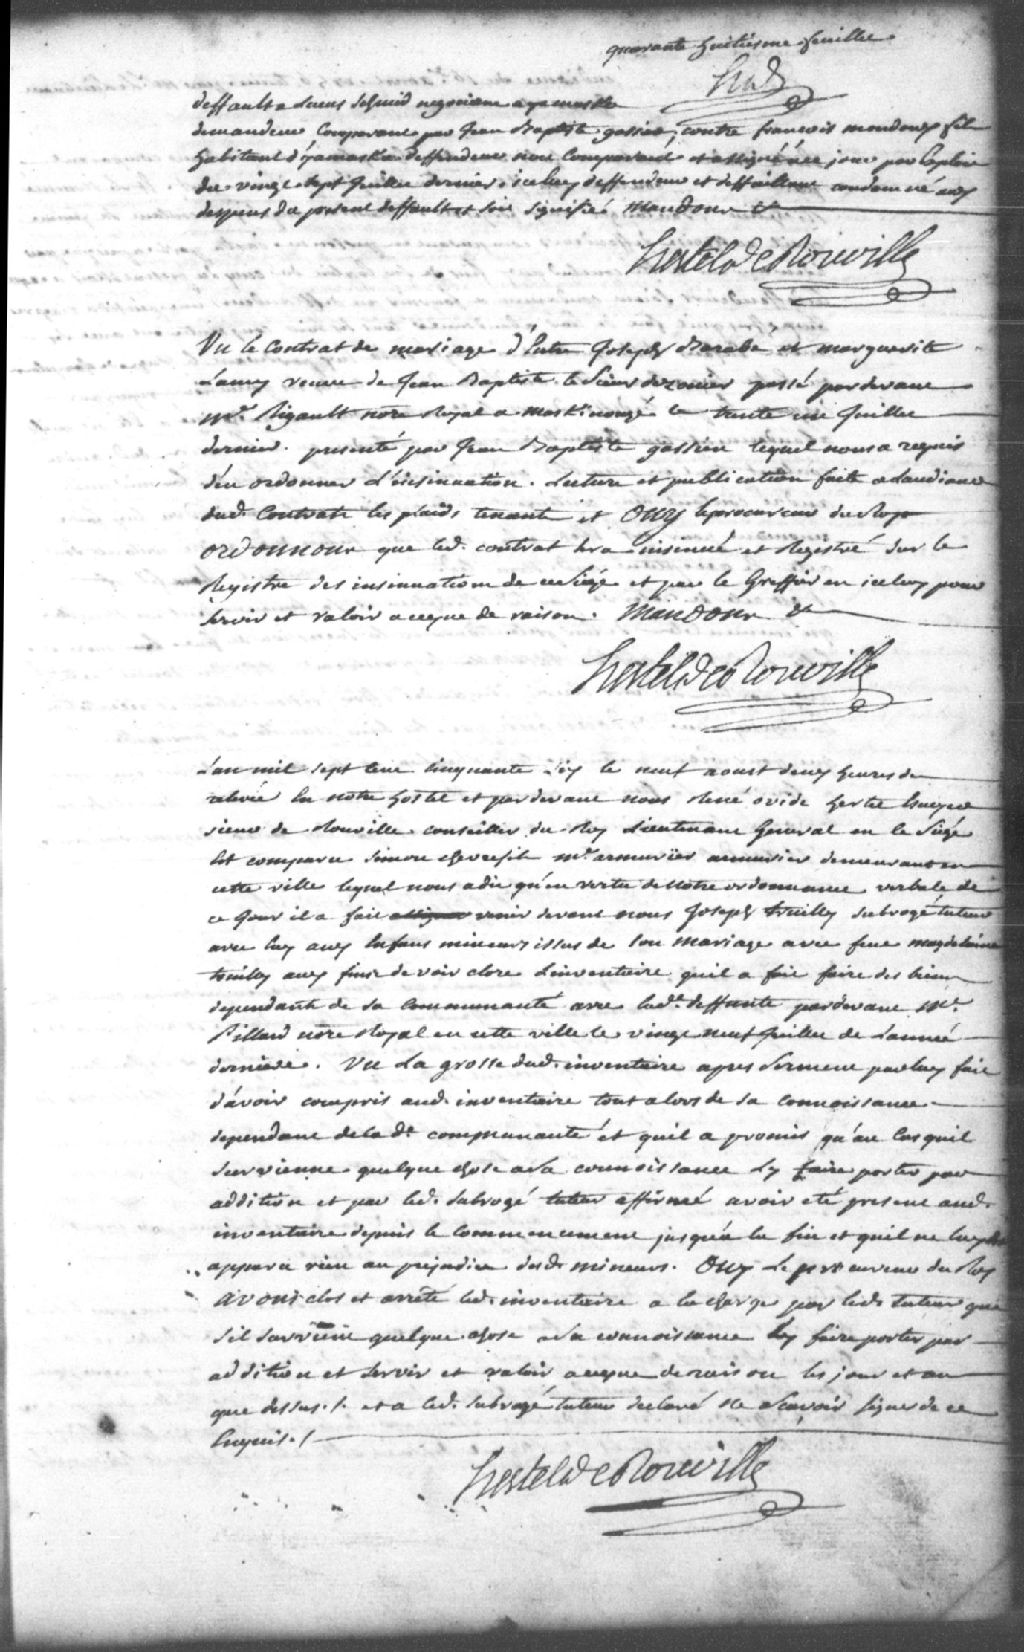 quarante huitiesme feuillet
HdR
deffault a Lucas Schmid negociant a yamaska
demandeur Comparant par Jean Baptiste gastien, contre françois mondoux fils
habitant d'yamaska deffendeur non Comparant et assigné a ce jour par Exploit
du vingt sept Juillet dernier. icelluy deffendeur et deffaillant condamné aux
despens du present deffault et soit signifié Mandons &
Hertel De Rouville
Vu le Contrat de mariage d'Entre Joseph Barabé et marguerite
Lamy veuve de Jean Baptiste le Sieur passé pardevant
Mr. Rigault notre Royal a mask. nongé le trente un Juillet
dernier. presenté par Jean Baptiste gastien lequel nous a requis
d'en ordonner L'insinuation. Lecture et publication faite a Laudiance
dud. Contrat les plaids tenant et Ouy le procureur du Roy
ordonnons que led. contrat sera insinué et Registré sur le
Registre des insinuations de ce Siége et par le Greffier en iceluy pour
servir et valoir a ceque de raison. Mandons &
Hertel De Rouville
L'an mil sept Cent Cinquante Six le neuf aoust deux heures de
relevée En notre hostel et pardevant nous René ovide hertel Ecuyer
sieur de Rouville conseiller du Roy Lieutenant General en le Siége
Est comparu Simon chevrefils Me armurier armurier demeurant en
cette ville lequel nous a dit qu'en vertu de Notre ordonnance verbale de
ce Jour il a fait assigner venir devant nous Joseph touilly subrogé tuteur
avec luy aux Enfans mineurs issus de son mariage avec feue magdelaine
touilly aux fins de voir clore L'inventaire quil a fait faire des biens
dependants de sa Communauté avec lad.e deffunte pardevant Me.
Pillard notre Royal en cette ville le vingt neuf Juillet de Lannée
derniere. Vu La grosse dud. inventaire apres Serment par luy fait
d'avoir compris aud. inventaire tout alors de sa Connoissance
dependant de lad.e communauté et quil a promis qu'au Cas quil
survienne quelque chose a sa connoissance Ly faire porter par
addition et par led. subrogé tuteur affirmé avoir eté present aud.
inventaire depuis le Commencement jusqu'a la fin et quil ne luy
apparu rien au prejudice desd. mineurs. Ouy Le procureur du Roy
avons clos et arrêté led. inventaire a la charge par led. tuteur que
s'il survient quelque chose a sa connoissance Ly faire porter par
addition et servir et valoir a ceque de raison les jour et an
que dessus./. et a led. subrogé tuteur declaré Ne Scavoir Signer de ce
Enquis./.
Hertel De Rouville